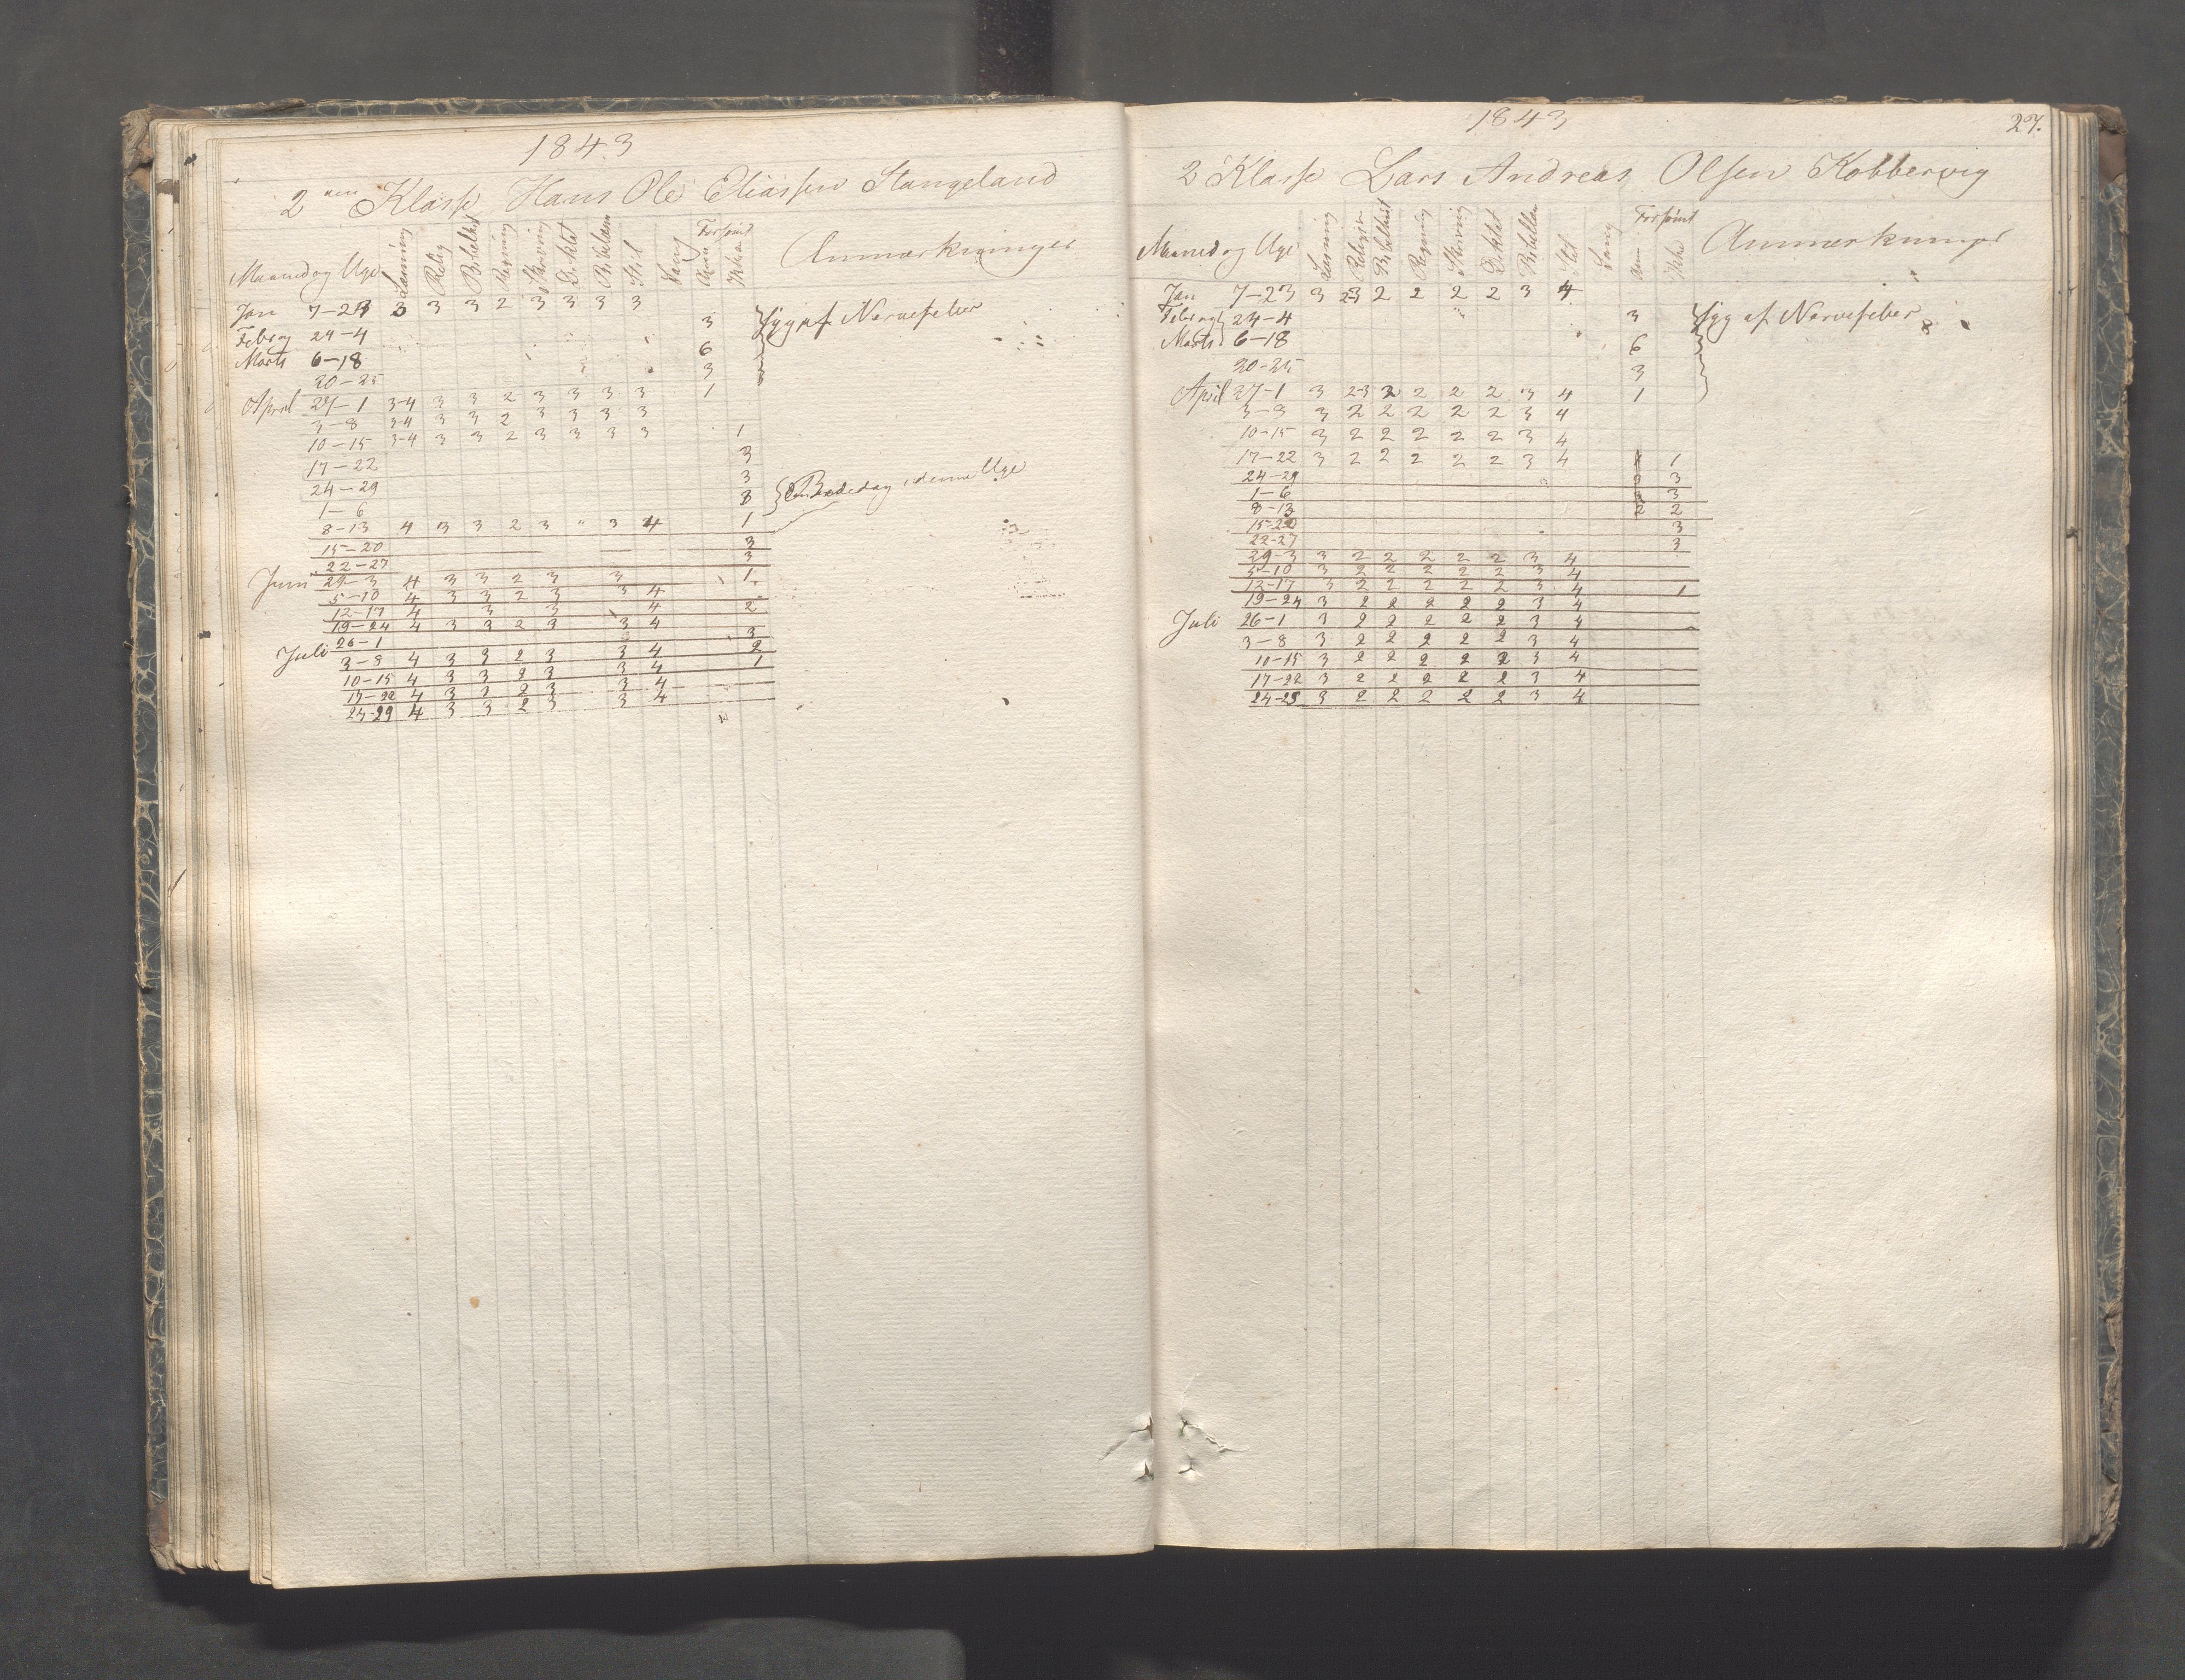 1843
2den Klasse Hans Ole Eliassen Stangeland
Maaned og Uge Læsning Relig Bibelhist Regning Skrivning Diktat Bibellæsn Stil Sang Forsømt Anm Ikke Anmærkninger
Jan 7-23 3 3 3 2 3 3 3 3
Febr og 24-4 3 Syg af Nervefeber
Marts 6-18 6
20-25 3
April 27-1 3-4 3 3 2 3 3 3 3 1
3-8 3-4 3 3 2 3 3 3 3
10-15 3-4 3 3 2 3 3 3 3 1
17-22 3
24-29 3
1-6 3 Bededag i denne Uge
8-13 4 3 3 2 3 " 3 4 1
15-20 3
22-27 3
Juni 29-3 4 3 3 2 3 3 1
5-10 4 3 3 2 3 3 4
12-17 4 3 3 4 2
19-24 4 3 3 2 3 3 4
Juli 26-1 3
3-8 4 3 3 2 3 3 4 2
10-15 4 3 3 2 3 3 4 1
17-22 4 3 3 2 3 3 4
24-29 4 3 3 2 3 3 4
1843 27.
2 Klasse Lars Andreas Olsen Kobbervig
Maaned og Uge Læsning Religion Bibelhist Regning Skrivning Diktat Bibellæsn Stil Sang Forsømt Anm Ikke Anmærkninger
Jan 7-23 3 2-3 2 2 2 2 3 4
Febr og 24-4 3 Syg af Nervefeber
Marts 6-18 6
20-25 3
April 27-1 3 2-3 2 2 2 2 3 4 1
3-8 3 2 2 2 2 2 3 4
10-15 3 2 2 2 2 2 3 4
17-22 3 2 2 2 2 2 3 4 1
24-29 3
1-6 3
8-13 2 2
15-20 3
22-27 3
29-3 3 2 2 2 2 2 3 4
5-10 3 2 2 2 2 2 3 4
12-17 3 2 2 2 2 2 3 4 1
19-24 3 2 2 2 2 2 3 4
Juli 26-1 3 2 2 2 2 2 3 4
3-8 3 2 2 2 2 2 3 4
10-15 3 2 2 2 2 2 3 4
17-22 3 2 2 2 2 2 3 4
24-29 3 2 2 2 2 2 3 4